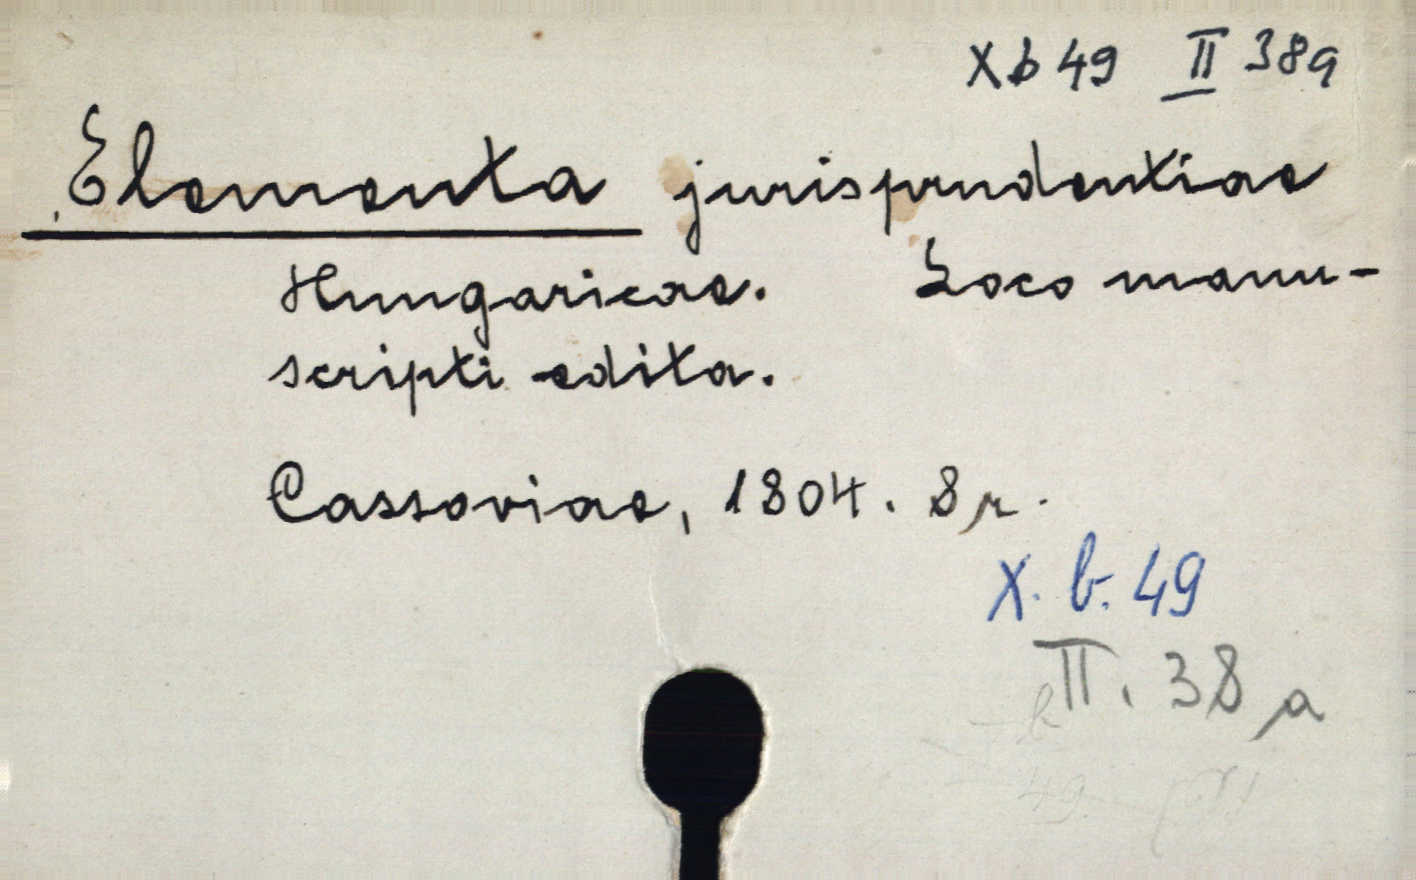 Xb 49 II 38a
Elementa jurisprudentiae
Hungaricae. Loco manu-
scripti edita.
Cassoviae, 1804. 8r.
X. b. 49
II. 38a